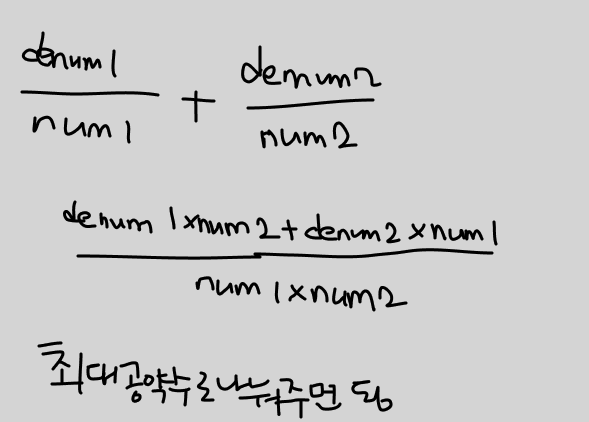 denum1 + denum2
num1 num2
denum1×num2+denum2×num1
num1×num2
최대공약수로나눠주면 됨